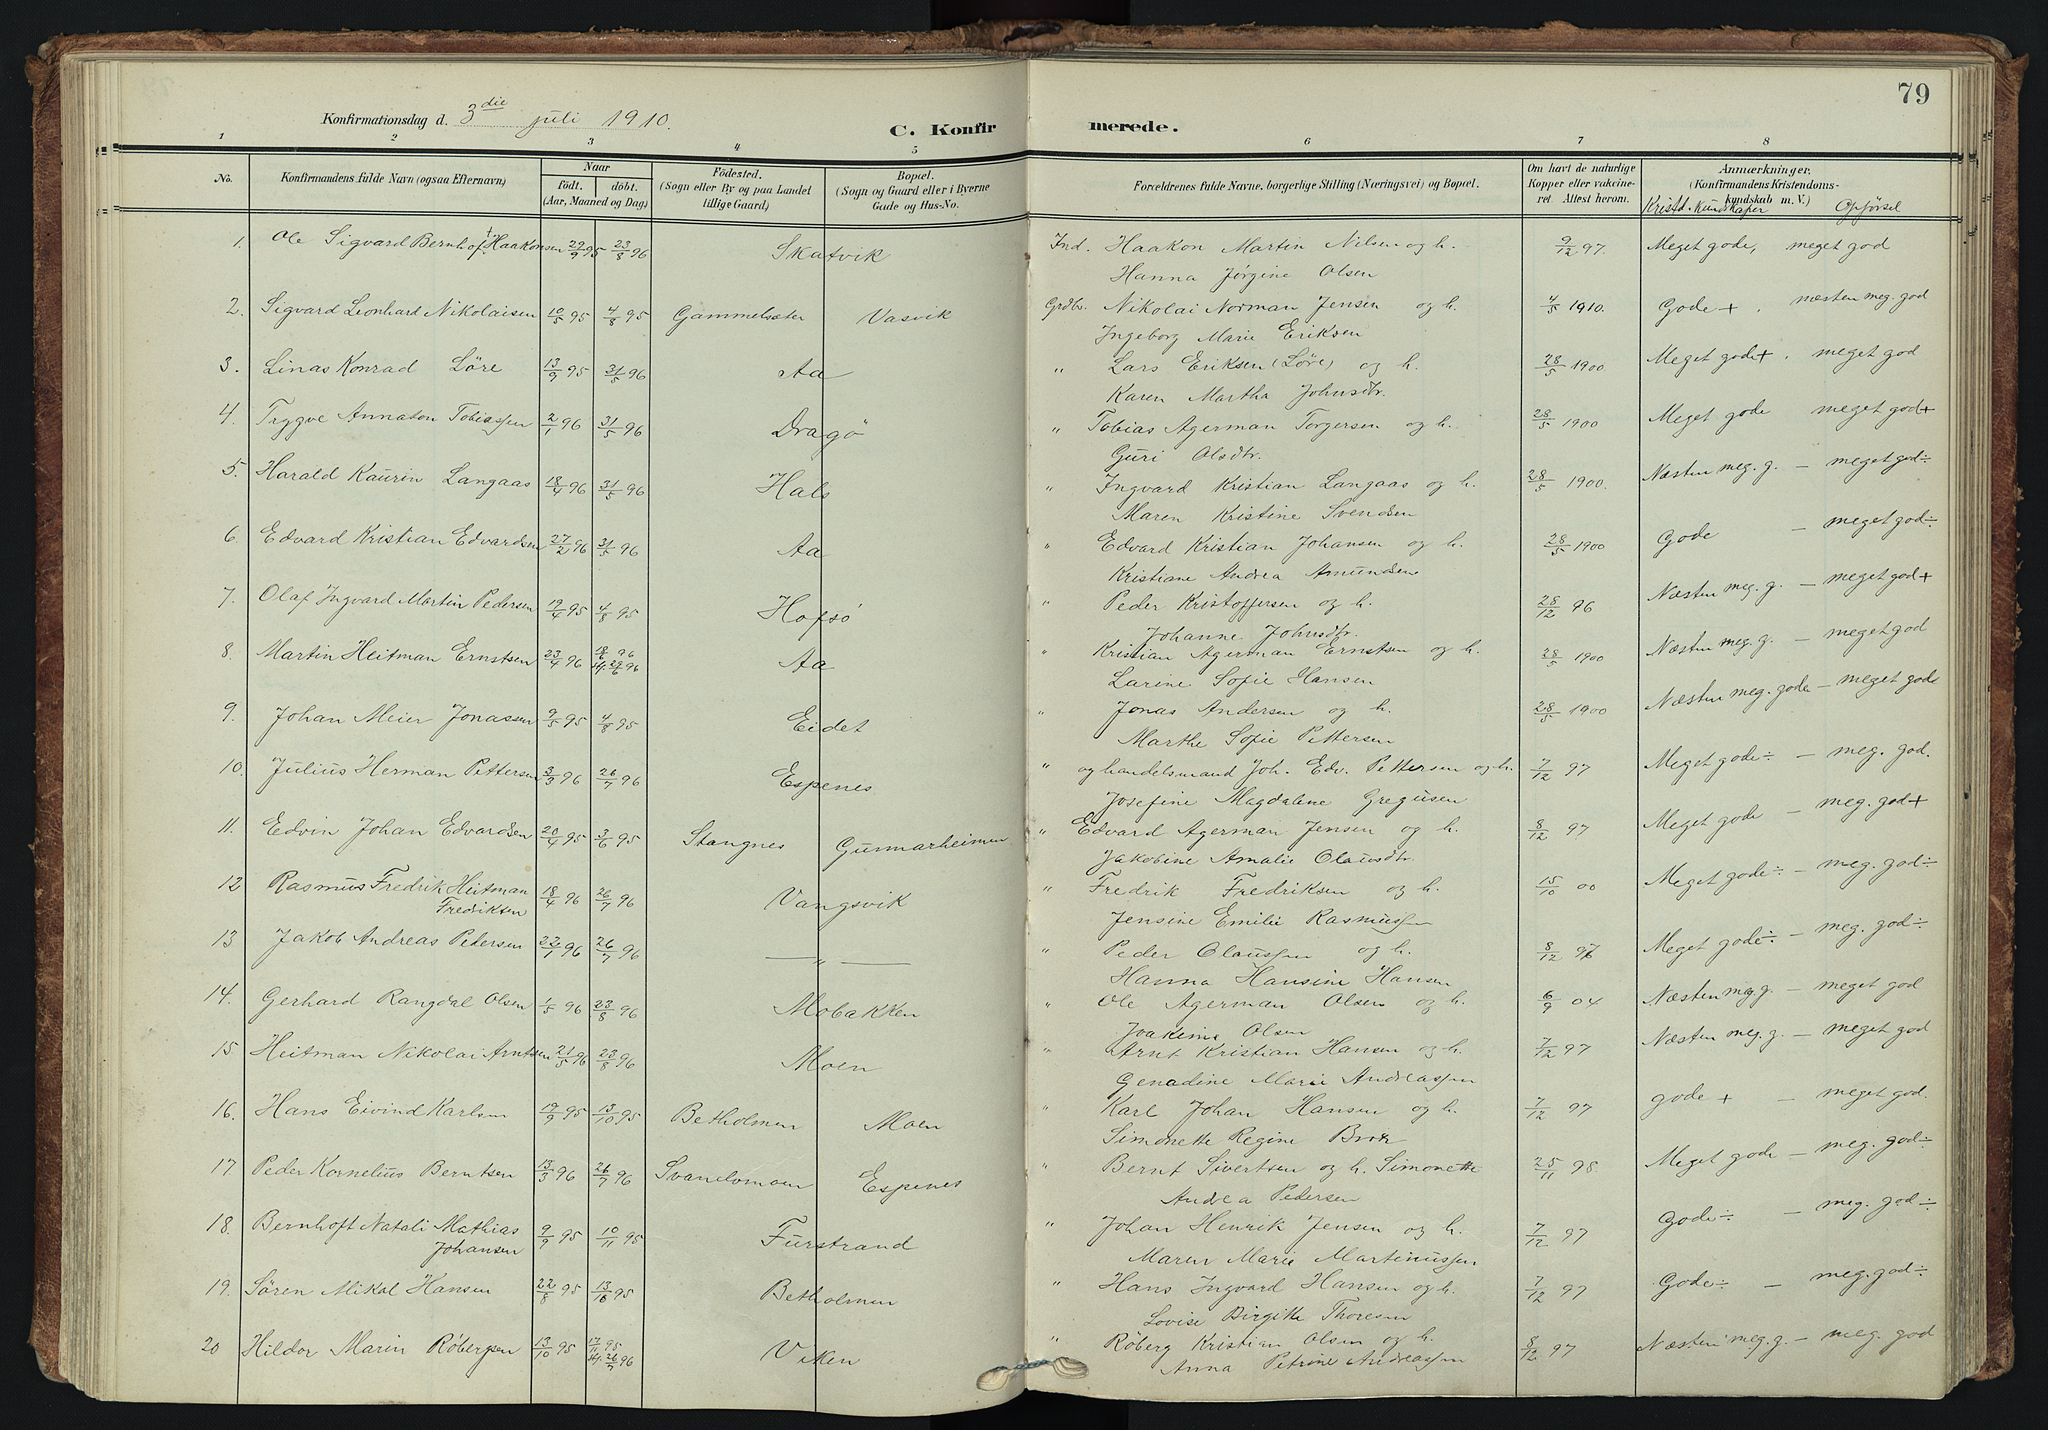 79
Konfirmationsdag d. 3die juli 1910.
C. Konfirmerede.
1 2 3 4 5 6 7 8
No. Konfirmandens fulde Navn (ogsaa Efternavn) Naar født. døbt. (Aar, Maaned og Dag) Fødested. (Sogn eller By og paa Landet tillige Gaard) Bopæl. (Sogn og Gaard eller i Byerne Gade og Hus-No. Forældrenes fulde Navne, borgerlige Stilling (Næringsvei) og Bopæl. Om havt de naturlige Kopper eller vakcineret. Attest herom. Anmærkninger. (Konfirmandens Kristendomskundskab m. V.)
Kristd. kundskaper Opførsel
1. Ole Sigvard Bernhoft Haakonsen 29/9 95 23/8 96 Skatvik Ind. Haakon Martin Nilsen og h. 9/12 97. Meget gode, meget god
Hanna Jørgine Olsen
2. Sigvard Leonhard Nikolaisen 10/5 95 4/8 95 Gammelsæter Vasvik Grdbr. Nikolai Norman Jensen og h. 4/5 1910. Gode + . næsten meg. god
Ingeborg Marie Eriksen
3. Linas Konrad Løre 13/9 95 31/5 96 Aa " Lars Eriksen (Løre) og h. 28/5 1900 Meget gode+ . meget god
Karen Martha Johnsdtr.
4. Trygve Annaton Tobiassen 2/1 96 31/5 96 Dragø " Tobias Agerman Torgersen og h. 28/5 1900 Meget gode meget god+
Guri Olsdtr.
5. Harald Kaurin Langaas 18/4 96 31/5 96 Hals " Ingvard Kristian Langaas og h. 28/5 1900. Næsten meg. g. – meget god÷
Maren Kristine Svendsen
6. Edvard Kristian Edvardsen 27/2 96 31/5 96 Aa " Edvard Kristian Johansen og h. 28/5 1900 Gode – meget god÷
Kristiane Andrea Amundsen
7. Olaf Ingvard Martin Pedersen 19/4 95 4/8 95 Hofsø " Peder Kristoffersen og h. 28/12 96 Næsten meg. g. – meget god+
Johanne Johnsdtr.
8. Martin Heitman Ernstsen 23/4 96 18/6 96 " Kristian Agerman Ernstsen og h. 28/5 1900 Næsten meg. g. – meget god
Aa Larine Sofie Hansen
9. Johan Meier Jonassen 9/5 95 4/8 95 Eidet " Jonas Andersen og h. 28/5 1900 Næsten meg. gode – meget gode
Marthe Sofie Pettersen
10. Julius Herman Pettersen 3/3 96 26/7 96 Espenes " og handelsmand Joh. Edv. Pettersen og h. 7/12 97 Meget gode÷ – meg. god.
Josefine Magdalene Gregusen
11. Edvin Johan Edvardsen 20/4 95 3/6 95 Stangnes Gunnarheimen " Edvard Agerman Jensen og h. 8/12 97 Meget gode – meg. god+
Jakobine Amalie Olausdtr.
12 Rasmus Fredrik Heitman 18/4 96 26/7 96 Vangsvik " Fredrik Fredriksen og h. 15/10 00 Meget gode÷ – meg. god÷
Fredriksen Jensine Emilie Rasmussen
13 Jakob Andreas Pedersen 22/1 96 26/7 96 — " — " Peder Olaussen og h. 8/12 97 Meget gode÷ – meg. god÷
Hanna Hansine Hansen
14. Gerhard Rangdal Olsen 1/5 96 23/8 96 Mobakken " Ole Agerman Olsen og h. 6/9 04. Næsten meg. g. – meget god
Joakime Olsen
15. Heitman Nikolai Arntsen 21/5 96 23/8 96 Moen " Arnt Kristian Hansen og h. 7/12 97 Næsten meg. g. – meget god
Genadine Marie Andreassen
16. Hans Eivind Karlsen 19/9 95 13/10 95 Betholmen Moen " Karl Johan Hansen og h. 7/12 97 gode + – meget god.
Simonette Regine
17 Peder Kornelius Berntsen 13/3 96 26/7 96 Svanelvmoen Espenes " Bernt Sivertsen og h. Simonette 25/11 98. Meget gode – meg. god÷
Andrea Pedersen
18. Bernhoft Natali Mathias 9/9 95 10/11 95 Furstrand " Johan Henrik Jensen og h. 7/12 97 Gode÷ – meg. god÷
Johansen Maren Marie Martinussen
19. Søren Mikal Hansen 22/8 95 13/10 95 Betholmen " Hans Ingvard Hansen og h. 7/12 97 Gode÷ – meg. god÷
Lovise Birgitte Thoresen
20 Hildor Marin Røbergsen 13/10 95 17/11 95 Viken " Røberg Kristian Olsen og h. 8/12 97 Næsten meg. g. – meg. god
26/7 96 Anna Petrine Andreassen